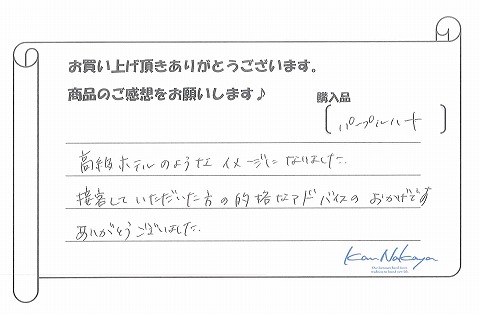 お買い上げ頂きありがとうございます。
商品のご感想をお願いします♪
購入品
[パープルハート]
高級ホテルのようなイメージになりました.
接客していただいた方の的格なアドバイスのおかげです
ありがとうございました.
Kan Nakaya